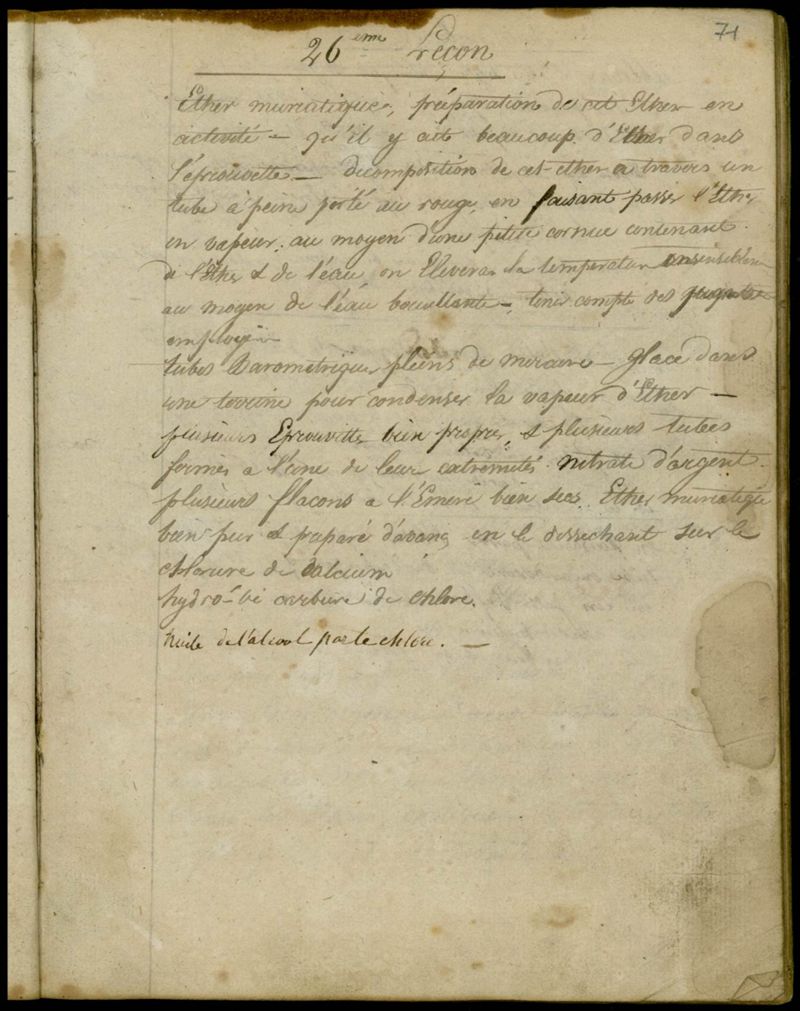 71
26eme Leçon
Ether muriatique, préparation de cet Ether en
activité – qu'il y ait beaucoup d'Ether dans
l'éprouvette – decomposition de cet ether a travers un
tube à peine porté au rouge, en faisant passer l'Ether
en vapeur, au moyen d'une petite cornue contenant
de l'Ether & de l'eau on Elevera la temperature insensiblem
au moyen de l'eau bouillante –, tenir compte des
employée
tubes Barometriques pleins de mercure – Glace dans
une terrine pour condenser la vapeur d'Ether –
plusieurs Eprouvettes bien propres, & plusieurs tubes
fermés a l'une de leur extremités. nitrate d'argent.
plusieurs flacons a l'Emeri bien secs Ether muriatique
bien pur & preparé d'avance en le dessechant sur le
chlorure de Calcium
hydro-bi carbure de Chlore.
huile de l'alcool par le chlore. –